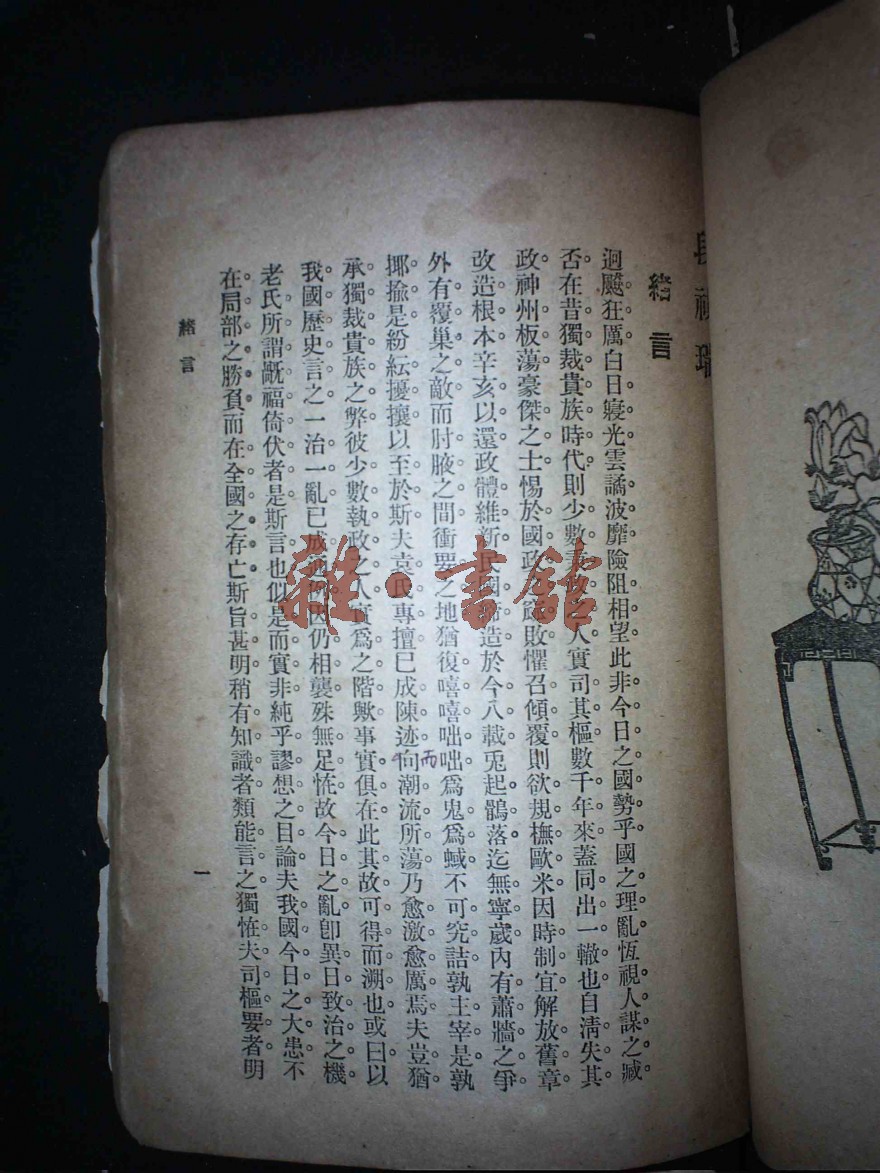 段祺瑞
緒言
迴飇狂厲白日寢光雲譎波靡險阻相望此非今日之國勢乎國之理亂恆視人謀之臧
否在昔獨裁貴族時代則少數執政之人實司其樞數千年來蓋同出一轍也自淸失其
政神州板蕩豪傑之士惕於國政之窳敗懼召傾覆則欲規橅歐米因時制宜解放舊章
改造根本辛亥以還政體維新民國締造於今八載兎起鶻落迄無寧歲內有蕭牆之爭
外有覆巢之敵而肘腋之間衝要之地猶復嘻嘻咄咄爲鬼爲蜮不可究詰孰主宰是孰
揶揄是紛紜擾攘以至於斯夫袁氏專擅已成陳迹向潮流所蕩乃愈激愈厲焉夫豈猶
而
承獨裁貴族之弊彼少數執政之人實爲之階歟事實俱在此其故可得而溯也或曰以
我國歷史言之一治一亂已成通例因仍相襲殊無足恠故今日之亂卽異日致治之機
老氏所謂旤福倚伏者是斯言也似是而實非純乎謬想之目論夫我國今日之大患不
在局部之勝負而在全國之存亡斯旨甚明稍有知識者類能言之獨恠夫司樞要者明
緒言
一
雜·書館